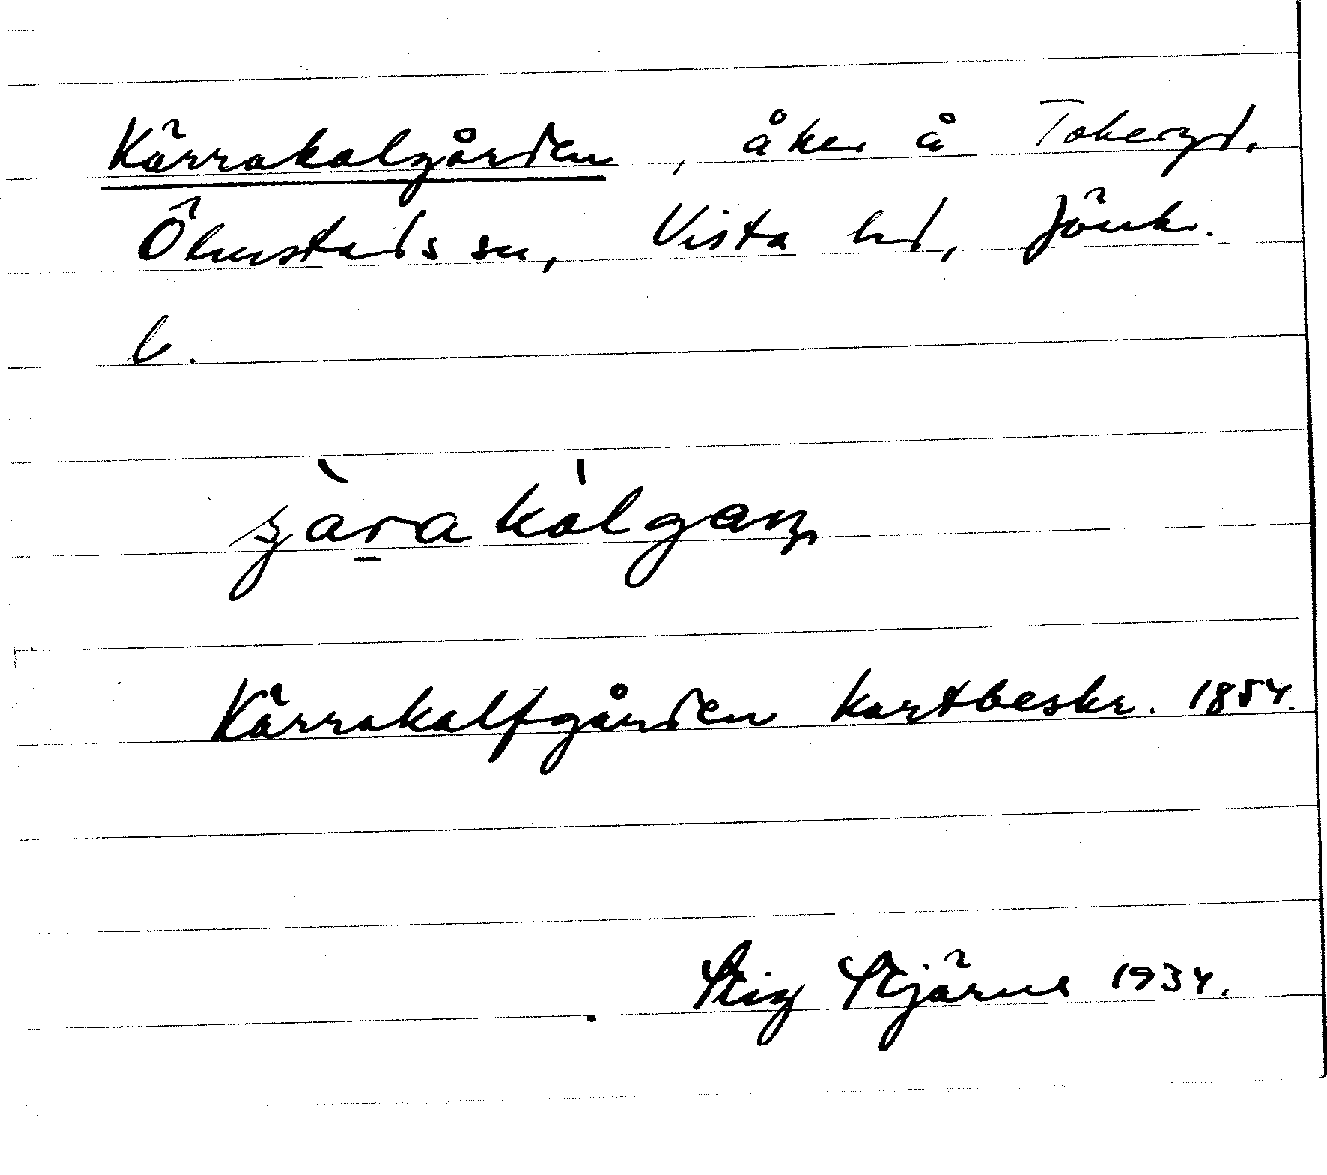 Kärrakalgården, åker å Tokeryd.
Ölmstads sn, Vista hd, Jönk.
l.
Kärrakalfgården kartbeskr. 1854.
Stig Stjärne 1934.